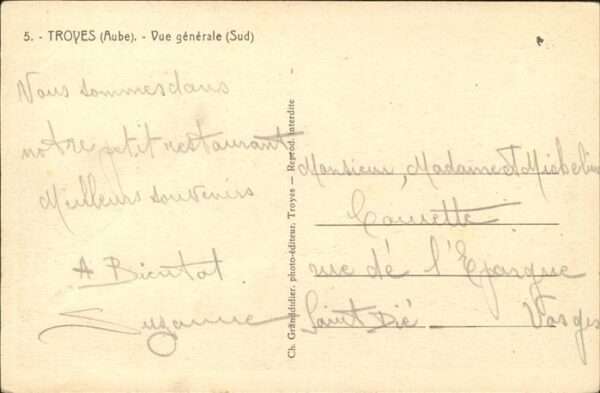 5. - TROYES (Aube). - Vue générale (Sud)
Nous sommes dans
notre petit restaurant
Meilleurs souvenirs
A Bientot.
Suzanne
Ch. Grandidier, photo-éditeur, Troyes — Reprod. interdite
Monsieur, Madame et Michelin
rue dé l'Epargne
Saint Dié Vosges